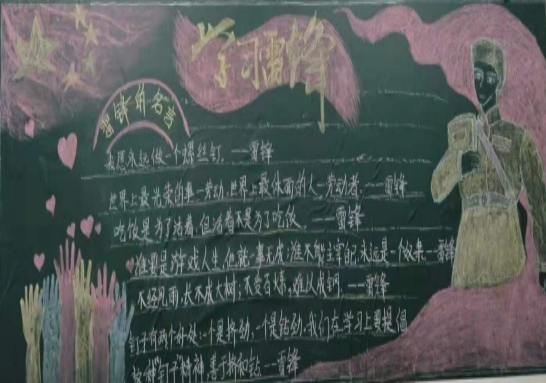 学习雷锋
雷锋的名言
我愿永远做一个螺丝钉。——雷锋
世界上最光荣的事—劳动,世界上最体面的人—劳动者。——雷锋
吃饭是为了活着,但活着不是为了吃饭。——雷锋
谁要是游戏人生,他就一事无成;谁不能主宰自己,永远是一个奴隶。—雷锋
不经风雨,长不成大树;不受百炼,难以成钢。——雷锋
钉子有两个好处:一个是挤劲,一个是钻劲,我们在学习上要提倡
这种"钉子"精神,善于挤和钻—雷锋